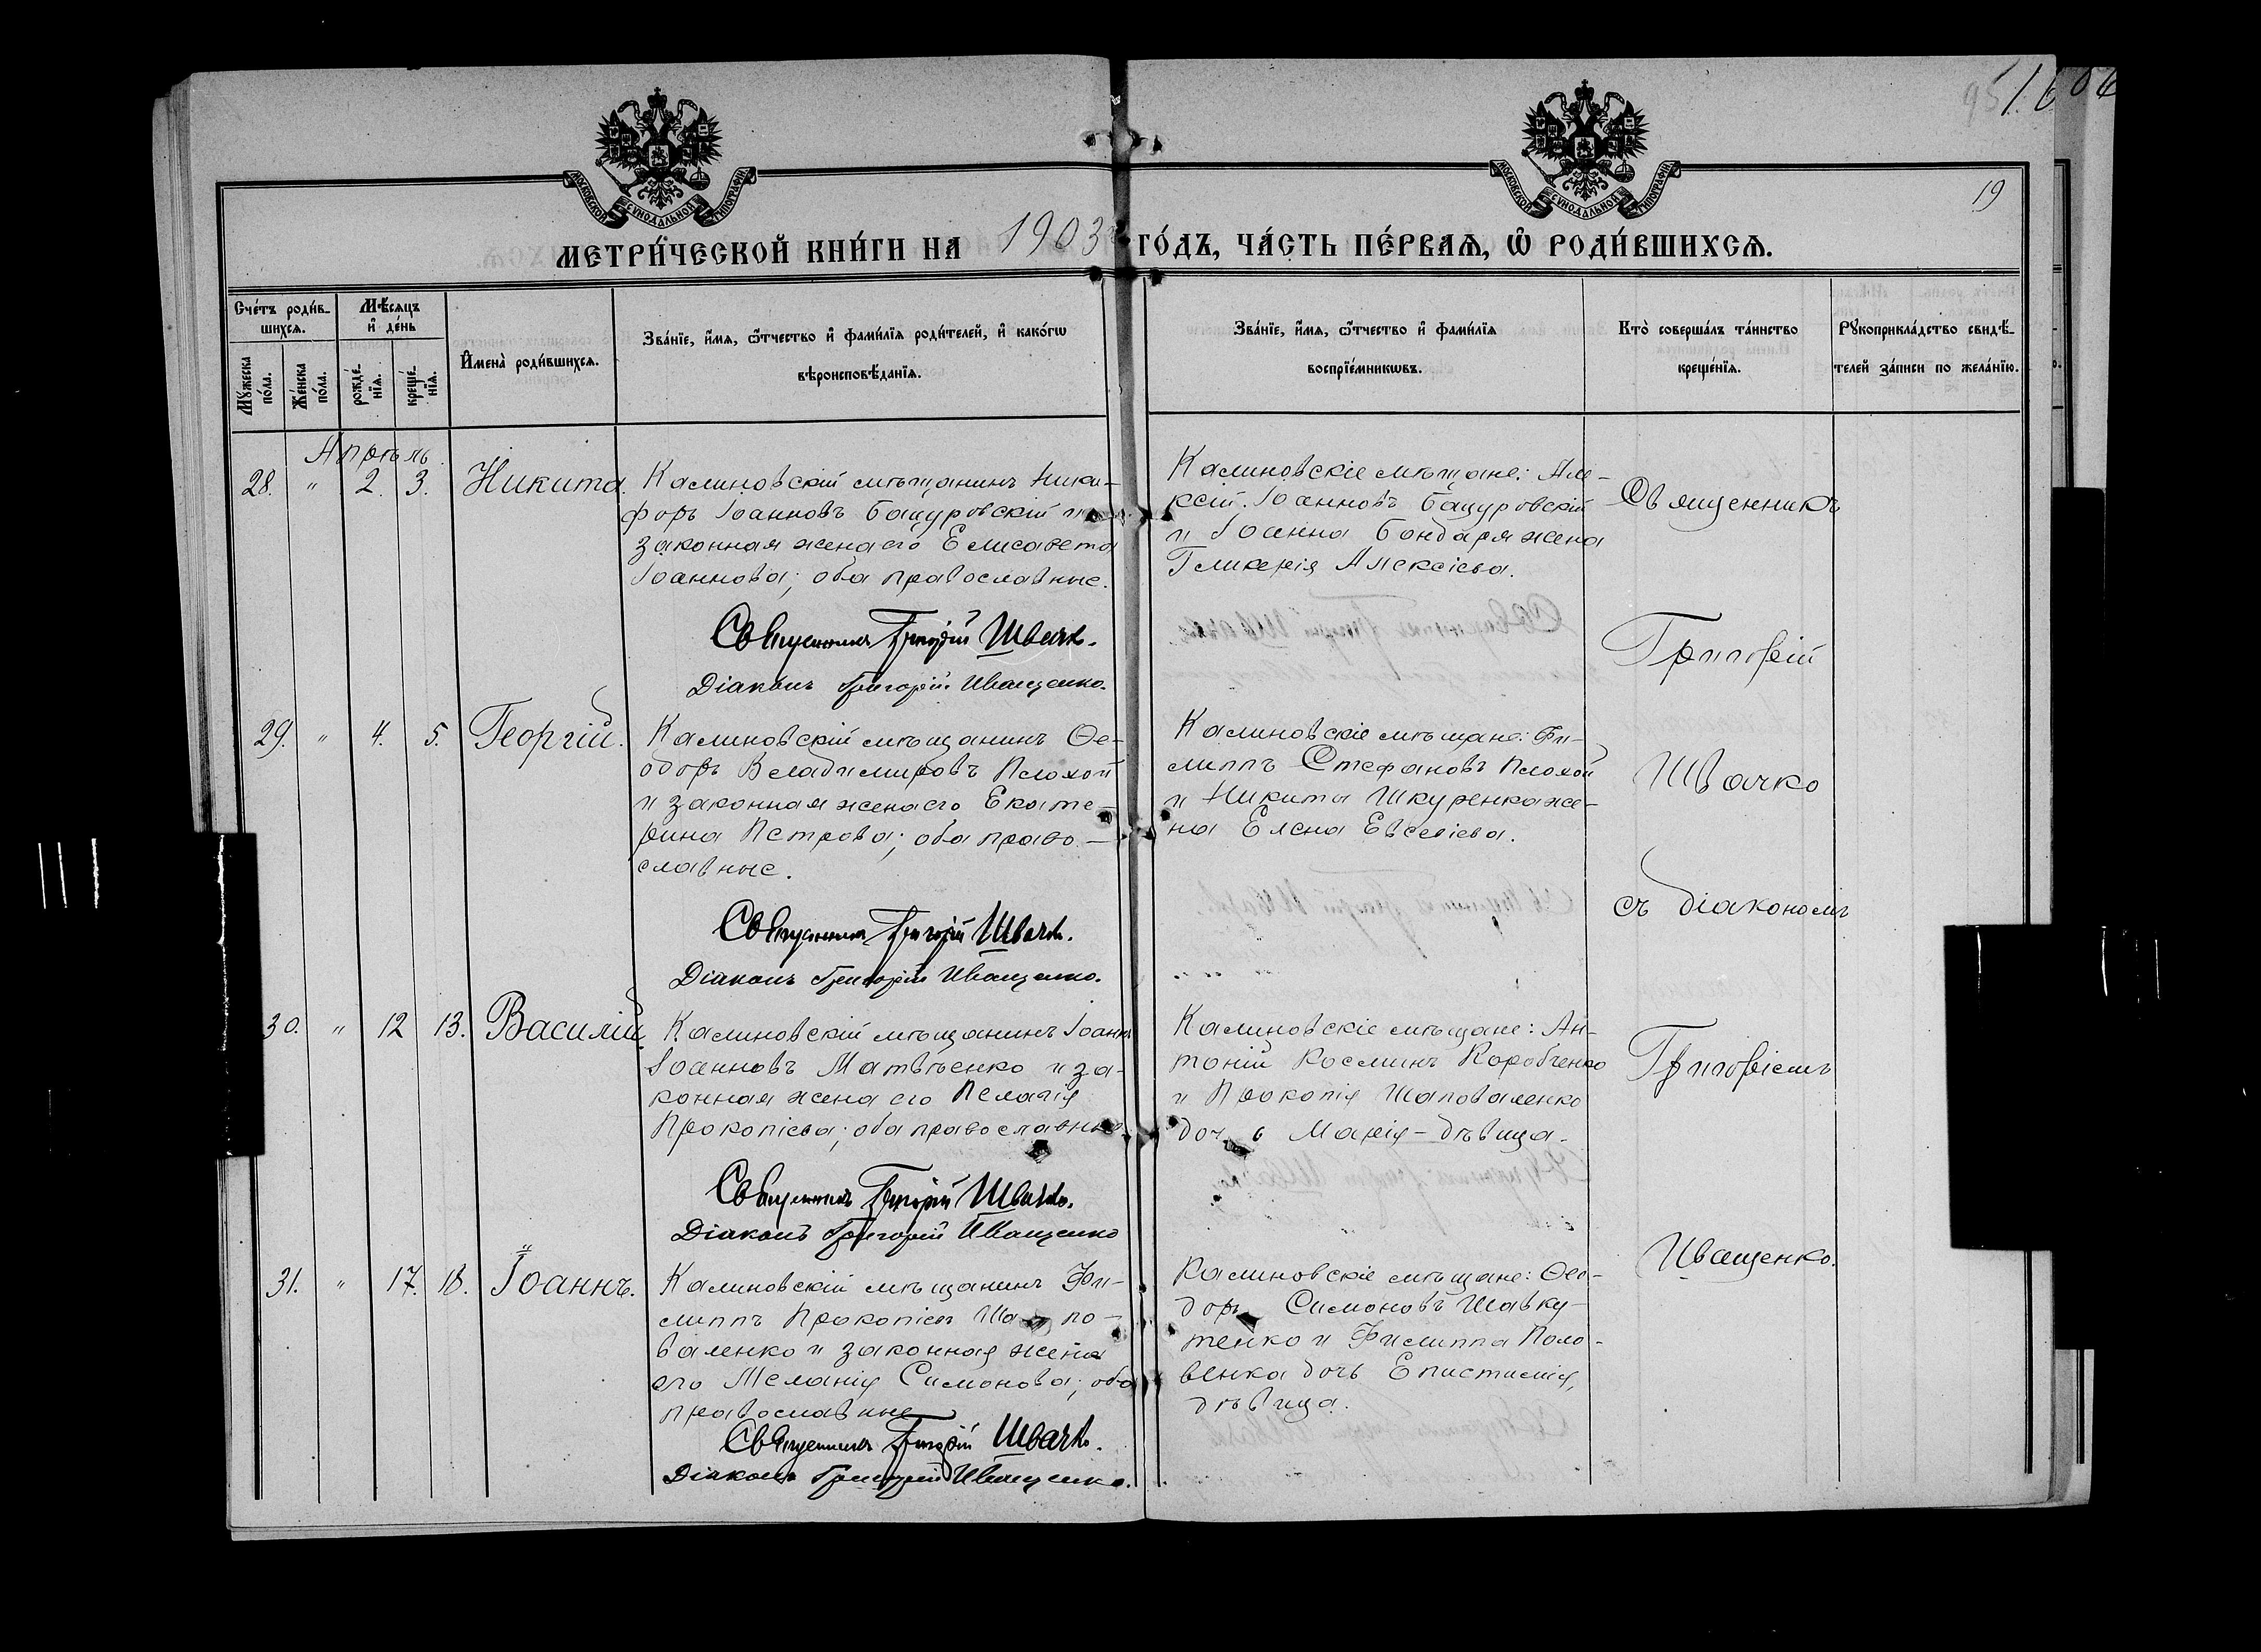 95 1606
МОСКОВСКОЙ СѴНОДАЛЬНОЙ ТИПОГРАФІИ
МОСКОВСКОЙ СѴНОДАЛЬНОЙ ТИПОГРАФІИ
19
МЕТРИ́ЧЕСКОЙ КНИ́ГИ НА 1903 ГО́ДЪ, ЧА́СТЬ ПЕ́РВАѦ, Ѡ҆ РОДИ́ВШИХСѦ.
Сче́тъ роди́в-
шихсѧ.
Мꙋжеска по́ла.
Же́нска по́ла.
Мѣ́сѧцъ
и҆ де́нь
рожде́-
нїѧ.
креще́-
нїѧ.
И҆мена̀ роди́вшихсѧ.
Зва́нїе, и҆́мѧ, ѻ҆́тчество и҆ фами́лїѧ роди́телей, и҆ како́гѡ
вѣроисповѣ́данїѧ.
Зва́нїе, и҆́мѧ, ѻ҆́тчество и҆ фами́лїѧ
воспрїе́мникѡвъ.
Кто̀ соверша́лъ та́инство
креще́нїѧ.
Рꙋкоприкла́дство свидѣ́-
телей за́писи по жела́нїю.
Апрѣль.
28. " 2. 3. Никита.
Калиновскій мѣщанинъ Ники-
форъ Іоанновъ Бацуровскій и
законная жена его Елисавета
Іоаннова; оба православные.
Священникъ Григорій Швачко.
Діаконъ Григорій Иващенко.
Калиновскіе мѣщане: Але-
ксій Іоанновъ Бацуровскій
и Іоанна Бондаря жена
Гликерія Алексіева.
Священникъ
Григорій
Швачко
съ діакономъ
Григоріемъ
Иващенко.
29. " 4. 5. Георгій.
Калиновскій мѣщанинъ Ѳе-
одоръ Владимировъ Плохой
и законная жена его Екате-
рина Петрова; оба право-
славные.
Священникъ Григорій Швачко.
Діаконъ Григорій Иващенко.
Калиновскіе мѣщане: Фи-
липпъ Стефановъ Плохой
и Никиты Шкуренка же-
на Елена Евсевіева.
30. " 12 13. Василій.
Калиновскій мѣщанинъ Іоаннъ
Іоанновъ Матвѣенко и за-
конная жена его Пелагія
Прокопіева; оба православные.
Священникъ Григорій Швачко.
Діаконъ Григорій Иващенко
Калиновскіе мѣщане: Ан-
тоній Косминъ Коробченко
и Прокопія Шаповаленко
дочь Марія - дѣвица.
31. " 17. 18. Іоаннъ.
Калиновскій мѣщанинъ Фи-
липпъ Прокопіевъ Шапо-
валенко и законная жена
его Меланія Симонова; оба
православные
Священникъ Григорій Швачко.
Діаконъ Григорій Иващенко.
Калиновскіе мѣщане: Ѳео-
доръ Симоновъ Шавку-
тенко и Филиппа Поло-
венка дочь Епистимія,
дѣвица.